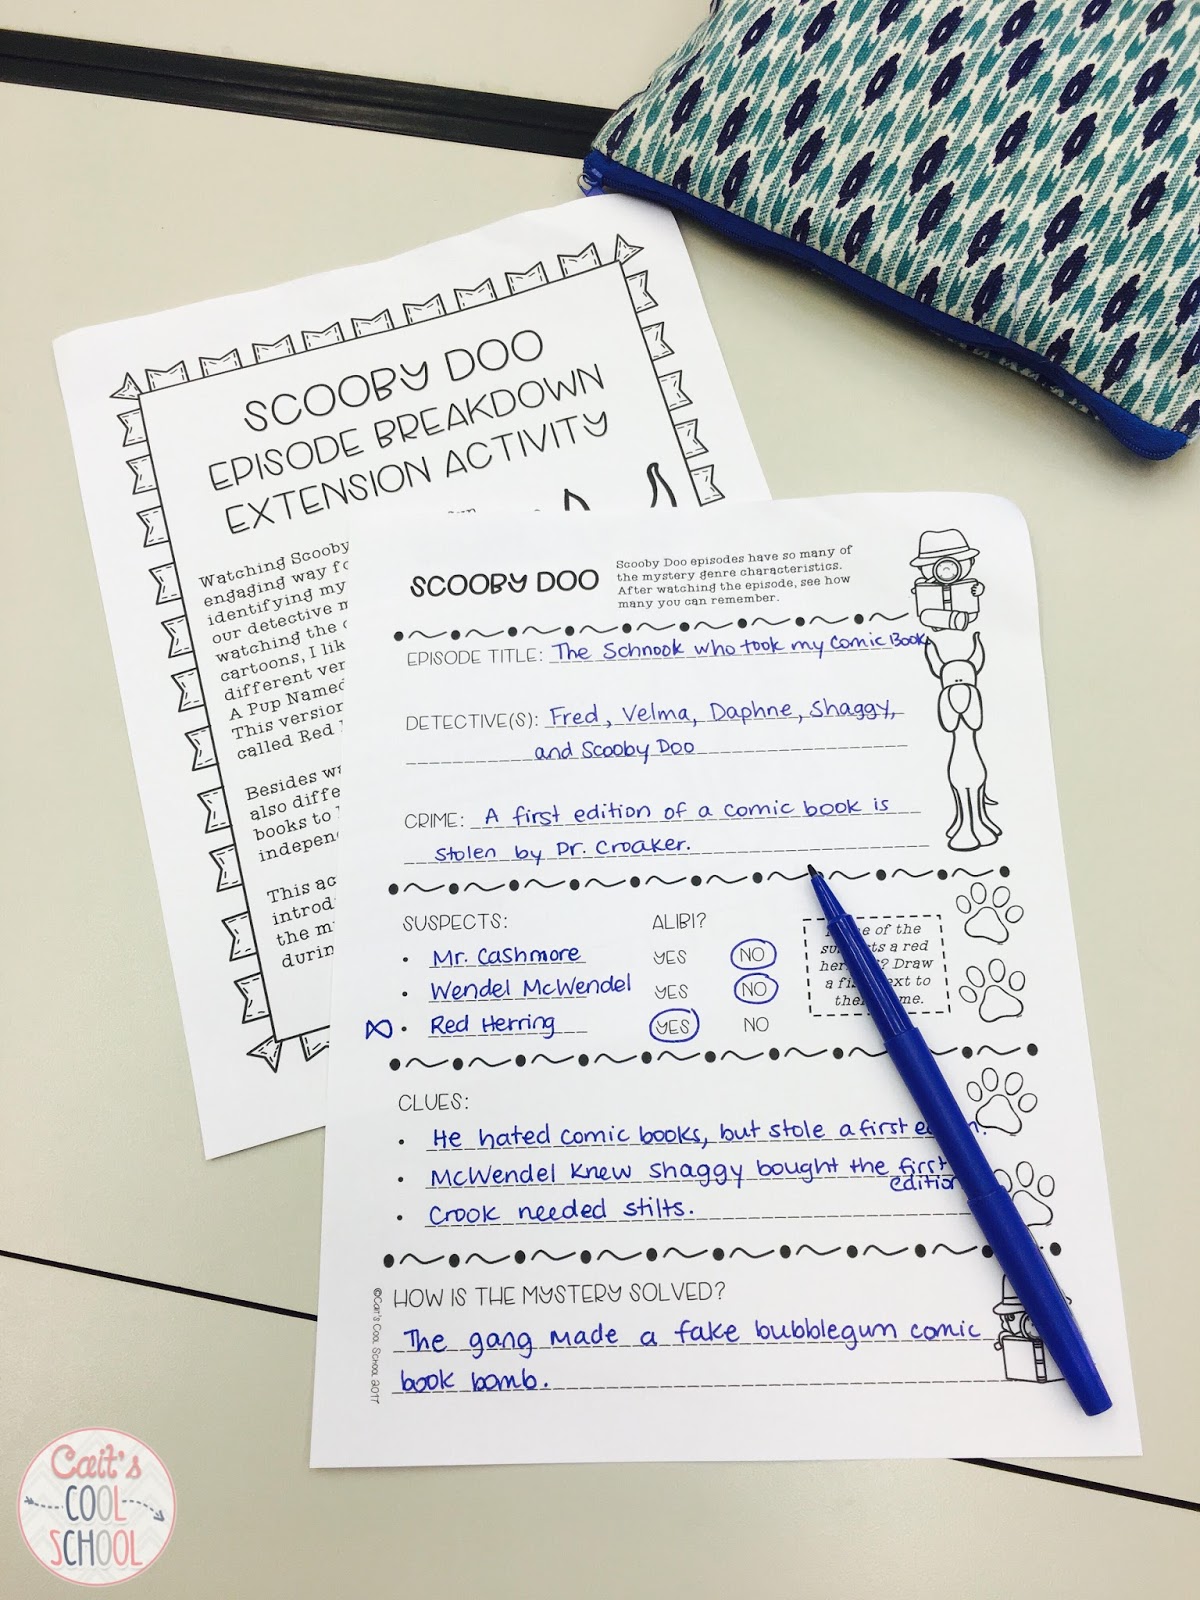 SCOOBY DOO
EPISODE BREAKDOWN
EXTENSION ACTIVITY
Watching Scooby
engaging way
identifying my
our detective
watching the
cartoons, I
different
A Pup Named
This version
called Red
Besides
also
books to
This
the
SCOOBY DOO
Scooby Doo episodes have so many of
the mystery genre characteristics.
After watching the episode, see how
many you can remember.
EPISODE TITLE: The Schnook who took my Comic Book
DETECTIVE(S): Fred, Velma, Daphne, Shaggy,
and Scooby Doo
CRIME: A first edition of a comic book is
stolen by Dr. Croaker.
SUSPECTS: ALIBI?
• Mr. Cashmore YES NO
• Wendel McWendel YES NO
• Red Herring YES NO
of the
a red
Draw
a to
CLUES:
• He hated comic books, but stole a first
• McWendel knew Shaggy bought the first
edition
• Crook needed stilts.
HOW IS THE MYSTERY SOLVED?
The gang made a fake bubblegum comic
book bomb.
©Cait's Cool School 2017
Cait's
COOL
SCHOOL